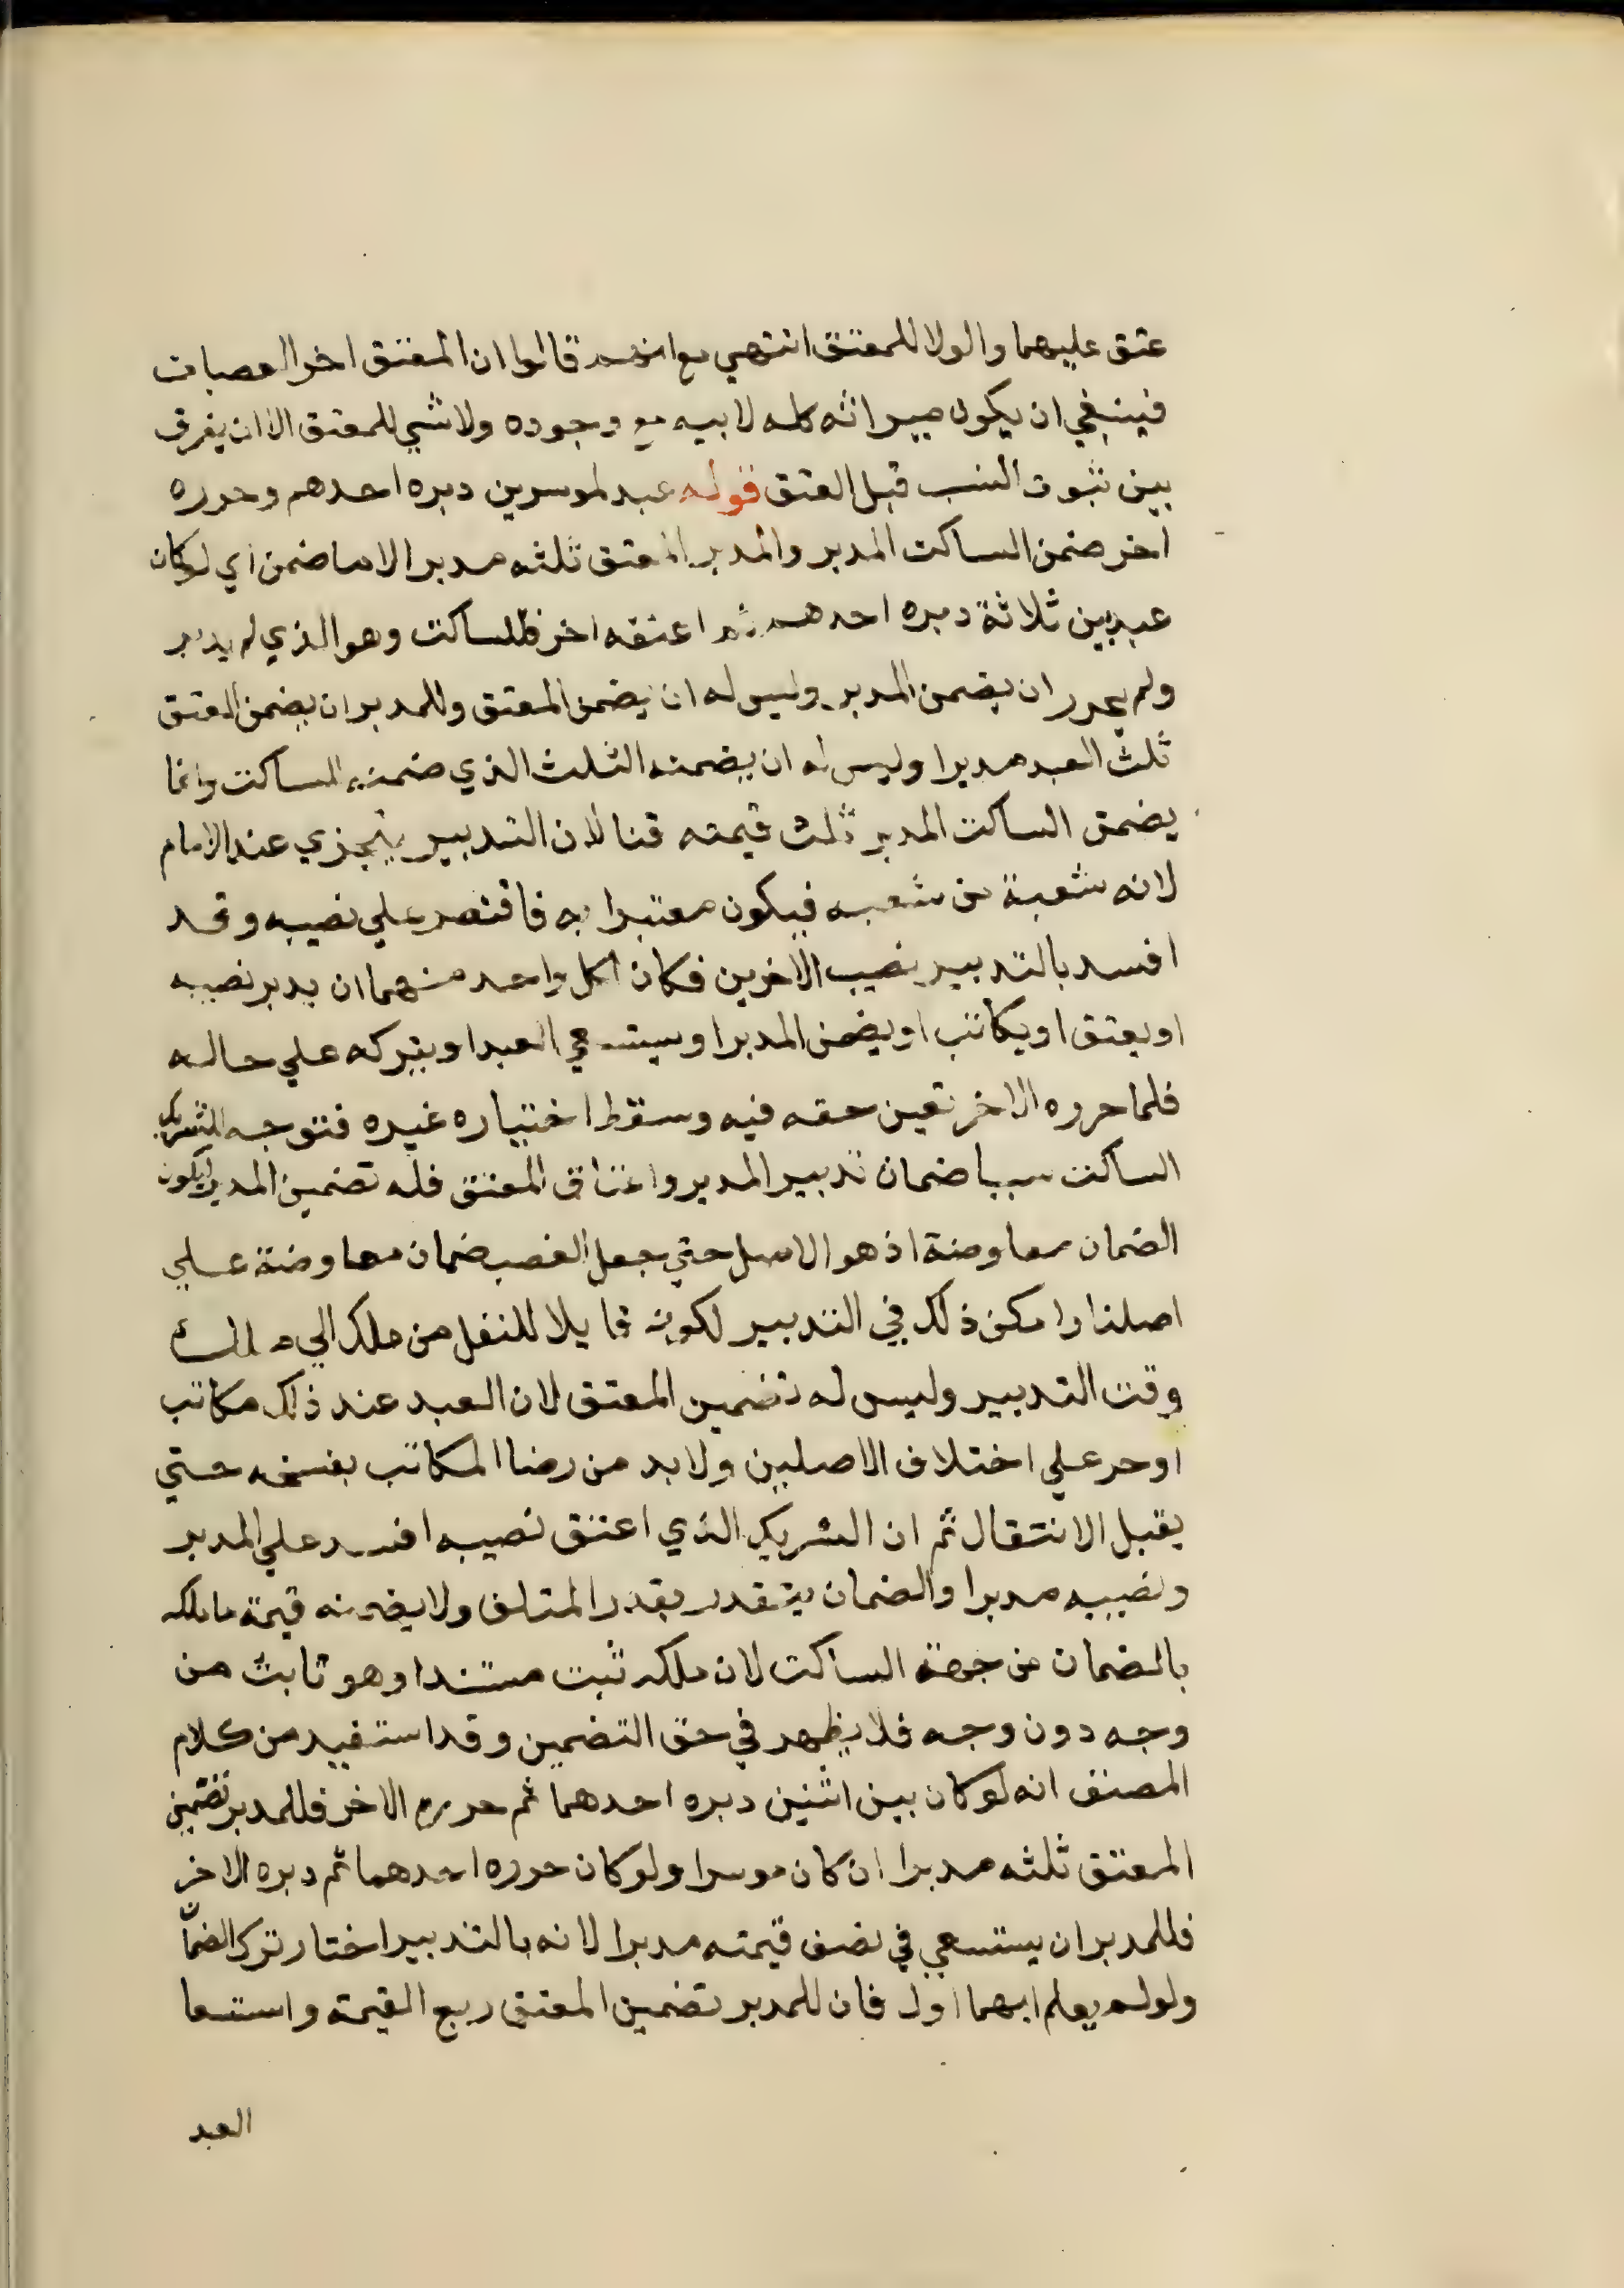 عتق عليهما والولا للمعتق انتهي مع انهم قالوا ان المعتق اخر العصبات
فينبغي ان يكون ميراثه كله لابيه مع وجوده ولا شي للمعتق الا ان يفرق
بين ثبوت النسب قبل العتق قوله عبد لموسرين دبره احدهم وحرره
اخر ضمن الساكت المدبر والمدبر المعتق ثلثه مدبرا لا ما ضمن اي لو كان
عبد بين ثلاثة دبره احدهم ثم اعتقه اخر فللساكت وهو الذي لم يدبر
ولم يحرر ان يضمن المدبر وليس له ان يضمن المعتق وللمدبر ان يضمن المعتق
ثلث العبد مدبرا وليس له ان يضمنه الثلث الذي ضمنه الساكت وانما
يضمن الساكت المدبر ثلث قيمته قنا لان التدبير يتجزي عند الامام
لانه شعبة من شعبه فيكون معتبرا به فاقتصر علي نصيبه وقد
افسد بالتدبير نصيب الاخرين فكان لكل واحد منهما ان يدبر نصيبه
او يعتق او يكاتب او يضمن المدبر او يستسعي العبد او يتركه علي حاله
فلما حرره الاخر تعين حقه فيه وسقط اختياره غيره فتوجه للشريك
الساكت سببا ضمان تدبير المدبر واعتاق المعتق فله تضمين المدبر ليكون
الضمان معاوضة اذ هو الاصل حتي جعل الغصب ضمان معاوضة علي
اصلنا وامكن ذلك في التدبير لكونه قابلا للنقل من ملك الي ملك
وقت التدبير وليس له تضمين المعتق لان العبد عند ذلك مكاتب
او حر علي اختلاف الاصلين ولا بد من رضا المكاتب بفسخه حتي
يقبل الانتقال ثم ان الشريك الذي اعتق نصيبه افسد علي المدبر
ونصيبه مدبرا والضمان يتقدر بقدر المتلف ولا يضمنه قيمة ما ملكه
بالضمان من جهة الساكت لان ملكه ثبت مستندا وهو ثابت من
وجه دون وجه فلا يظهر في حق التضمين وقد استفيد من كلام
المصنف انه لو كان بين اثنين دبره احدهما ثم حرره الاخر فللمدبر تضمين
المعتق ثلثه مدبرا ان كان موسرا ولو كان حرره احدهما ثم دبره الاخر
فللمدبر ان يستسعي في نصف قيمته مدبرا لانه بالتدبير اختار ترك الضمان
ولو لم يعلم ايهما اول فان للمدبر تضمين المعتق ربع القيمة واستسعا
العبد